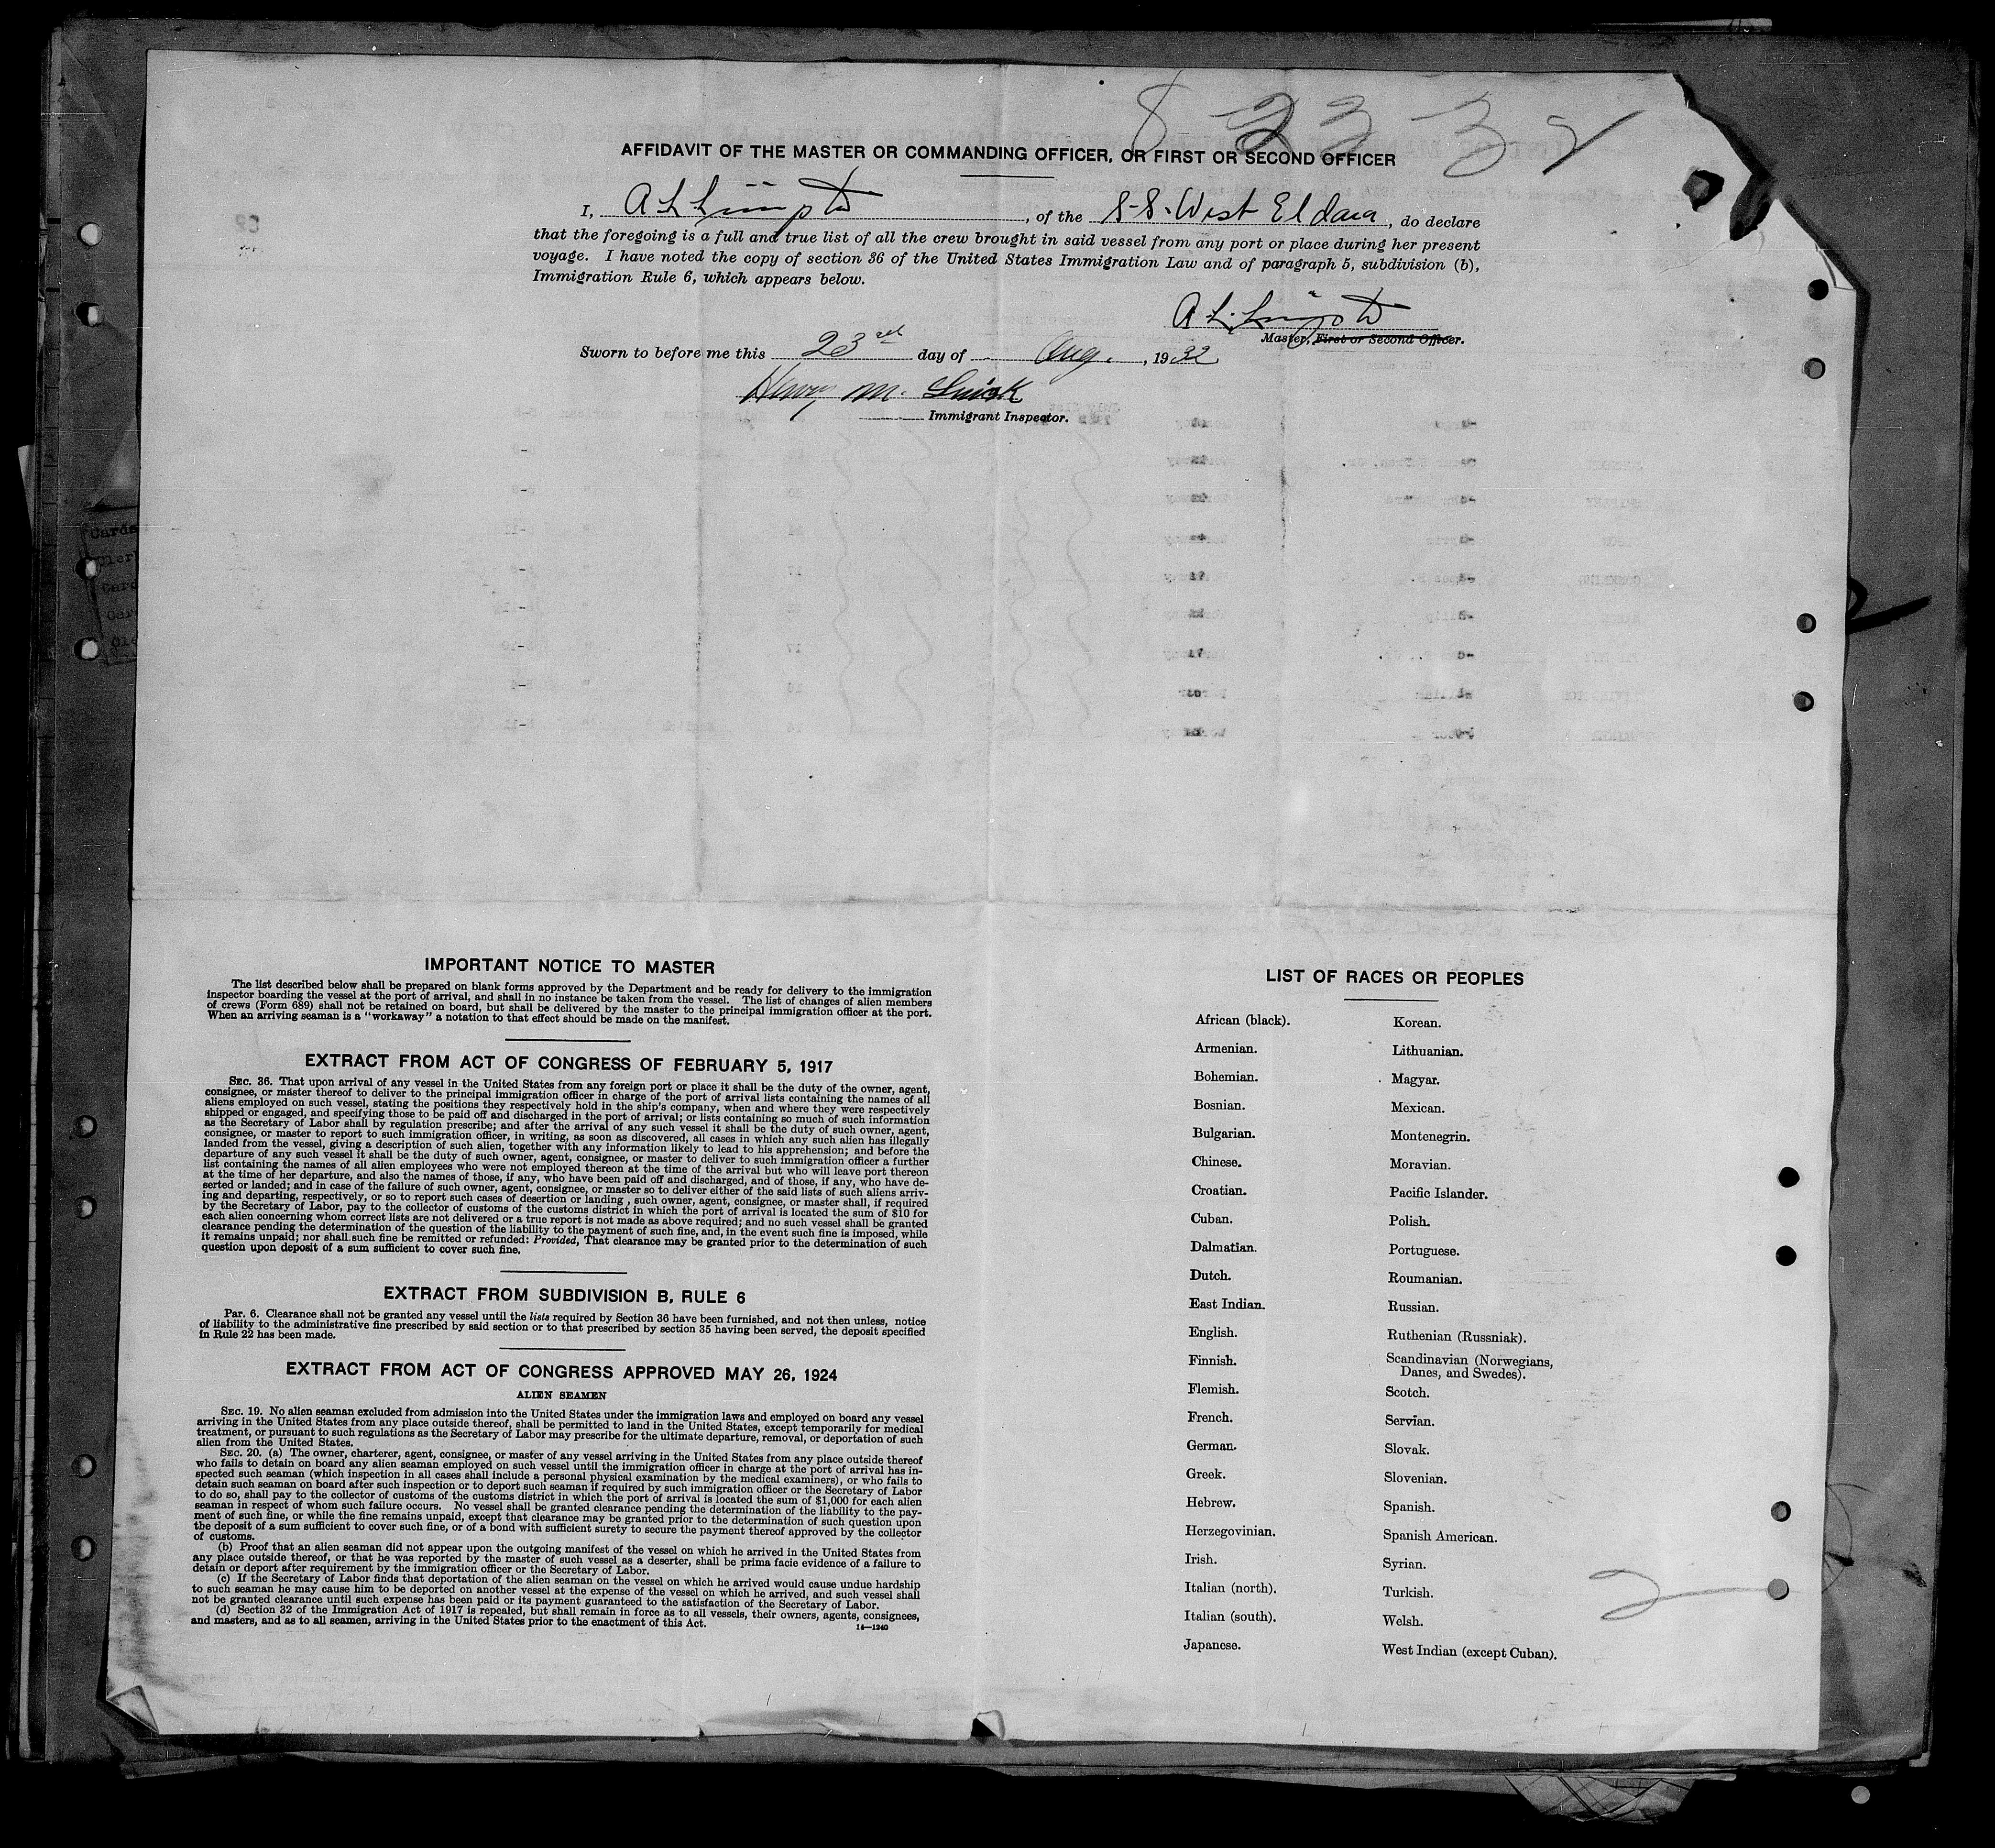 8-23-32
AFFIDAVIT OF THE MASTER OR COMMANDING OFFICER, OR FIRST OR SECOND OFFICER
I, A L, of the S-S. West Eldara, do declare
that the foregoing is a full and true list of all the crew brought in said vessel from any port or place during her present
voyage. I have noted the copy of section 36 of the United States Immigration Law and of paragraph 5, subdivision (b),
Immigration Rule 6, which appears below.
A L.
Master, First or Second Officer.
Sworn to before me this 23rd day of Aug., 1932
Henry M.
Immigrant Inspector.
IMPORTANT NOTICE TO MASTER
The list described below shall be prepared on blank forms approved by the Department and be ready for delivery to the immigration
inspector boarding the vessel at the port of arrival, and shall in no instance be taken from the vessel. The list of changes of alien members
of crews (Form 689) shall not be retained on board, but shall be delivered by the master to the principal immigration officer at the port.
When an arriving seaman is a "workaway" a notation to that effect should be made on the manifest.
EXTRACT FROM ACT OF CONGRESS OF FEBRUARY 5, 1917
SEC. 36. That upon arrival of any vessel in the United States from any foreign port or place it shall be the duty of the owner, agent,
consignee, or master thereof to deliver to the principal immigration officer in charge of the port of arrival lists containing the names of all
aliens employed on such vessel, stating the positions they respectively hold in the ship's company, when and where they were respectively
shipped or engaged, and specifying those to be paid off and discharged in the port of arrival; or lists containing so much of such information
as the Secretary of Labor shall by regulation prescribe; and after the arrival of any such vessel it shall be the duty of such owner, agent,
consignee, or master to report to such immigration officer, in writing, as soon as discovered, all cases in which any such alien has illegally
landed from the vessel, giving a description of such alien, together with any information likely to lead to his apprehension; and before the
departure of any such vessel it shall be the duty of such owner, agent, consignee, or master to deliver to such immigration officer a further
list containing the names of all alien employees who were not employed thereon at the time of the arrival but who will leave port thereon
at the time of her departure, and also the names of those, if any, who have been paid off and discharged, and of those, if any, who have de-
serted or landed; and in case of the failure of such owner, agent, consignee, or master so to deliver either of the said lists of such aliens arriv-
ing and departing, respectively, or so to report such cases of desertion or landing, such owner, agent, consignee, or master shall, if required
by the Secretary of Labor, pay to the collector of customs of the customs district in which the port of arrival is located the sum of $10 for
each alien concerning whom correct lists are not delivered or a true report is not made as above required; and no such vessel shall be granted
clearance pending the determination of the question of the liability to the payment of such fine, and, in the event such fine is imposed, while
it remains unpaid; nor shall such fine be remitted or refunded: Provided, That clearance may be granted prior to the determination of such
question upon deposit of a sum sufficient to cover such fine.
EXTRACT FROM SUBDIVISION B, RULE 6
PAR. 6. Clearance shall not be granted any vessel until the lists required by Section 36 have been furnished, and not then unless, notice
of liability to the administrative fine prescribed by said section or to that prescribed by section 35 having been served, the deposit specified
in Rule 22 has been made.
EXTRACT FROM ACT OF CONGRESS APPROVED MAY 26, 1924
ALIEN SEAMEN
SEC. 19. No alien seaman excluded from admission into the United States under the immigration laws and employed on board any vessel
arriving in the United States from any place outside thereof, shall be permitted to land in the United States, except temporarily for medical
treatment, or pursuant to such regulations as the Secretary of Labor may prescribe for the ultimate departure, removal, or deportation of such
alien from the United States.
SEC. 20. (a) The owner, charterer, agent, consignee, or master of any vessel arriving in the United States from any place outside thereof
who fails to detain on board any alien seaman employed on such vessel until the immigration officer in charge at the port of arrival has in-
spected such seaman (which inspection in all cases shall include a personal physical examination by the medical examiners), or who fails to
detain such seaman on board after such inspection or to deport such seaman if required by such immigration officer or the Secretary of Labor
to do so, shall pay to the collector of customs of the customs district in which the port of arrival is located the sum of $1,000 for each alien
seaman in respect of whom such failure occurs. No vessel shall be granted clearance pending the determination of the liability to the pay-
ment of such fine, or while the fine remains unpaid, except that clearance may be granted prior to the determination of such question upon
the deposit of a sum sufficient to cover such fine, or of a bond with sufficient surety to secure the payment thereof approved by the collector
of customs.
(b) Proof that an alien seaman did not appear upon the outgoing manifest of the vessel on which he arrived in the United States from
any place outside thereof, or that he was reported by the master of such vessel as a deserter, shall be prima facie evidence of a failure to
detain or deport after requirement by the immigration officer or the Secretary of Labor.
(c) If the Secretary of Labor finds that deportation of the alien seaman on the vessel on which he arrived would cause undue hardship
to such seaman he may cause him to be deported on another vessel at the expense of the vessel on which he arrived, and such vessel shall
not be granted clearance until such expense has been paid or its payment guaranteed to the satisfaction of the Secretary of Labor.
(d) Section 32 of the Immigration Act of 1917 is repealed, but shall remain in force as to all vessels, their owners, agents, consignees,
and masters, and as to all seamen, arriving in the United States prior to the enactment of this Act.
14—1240
LIST OF RACES OR PEOPLES
African (black).
Armenian.
Bohemian.
Bosnian.
Bulgarian.
Chinese.
Croatian.
Cuban.
Dalmatian.
Dutch.
East Indian.
English.
Finnish.
Flemish.
French.
German.
Greek.
Hebrew.
Herzegovinian.
Irish.
Italian (north).
Italian (south).
Japanese.
Korean.
Lithuanian.
Magyar.
Mexican.
Montenegrin.
Moravian.
Pacific Islander.
Polish.
Portuguese.
Roumanian.
Russian.
Ruthenian (Russniak).
Scandinavian (Norwegians,
Danes, and Swedes).
Scotch.
Servian.
Slovak.
Slovenian.
Spanish.
Spanish American.
Syrian.
Turkish.
Welsh.
West Indian (except Cuban).
2